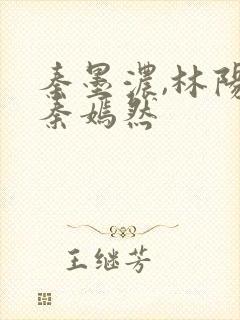 秦墨濃,林陽
秦嫣然
王继芳